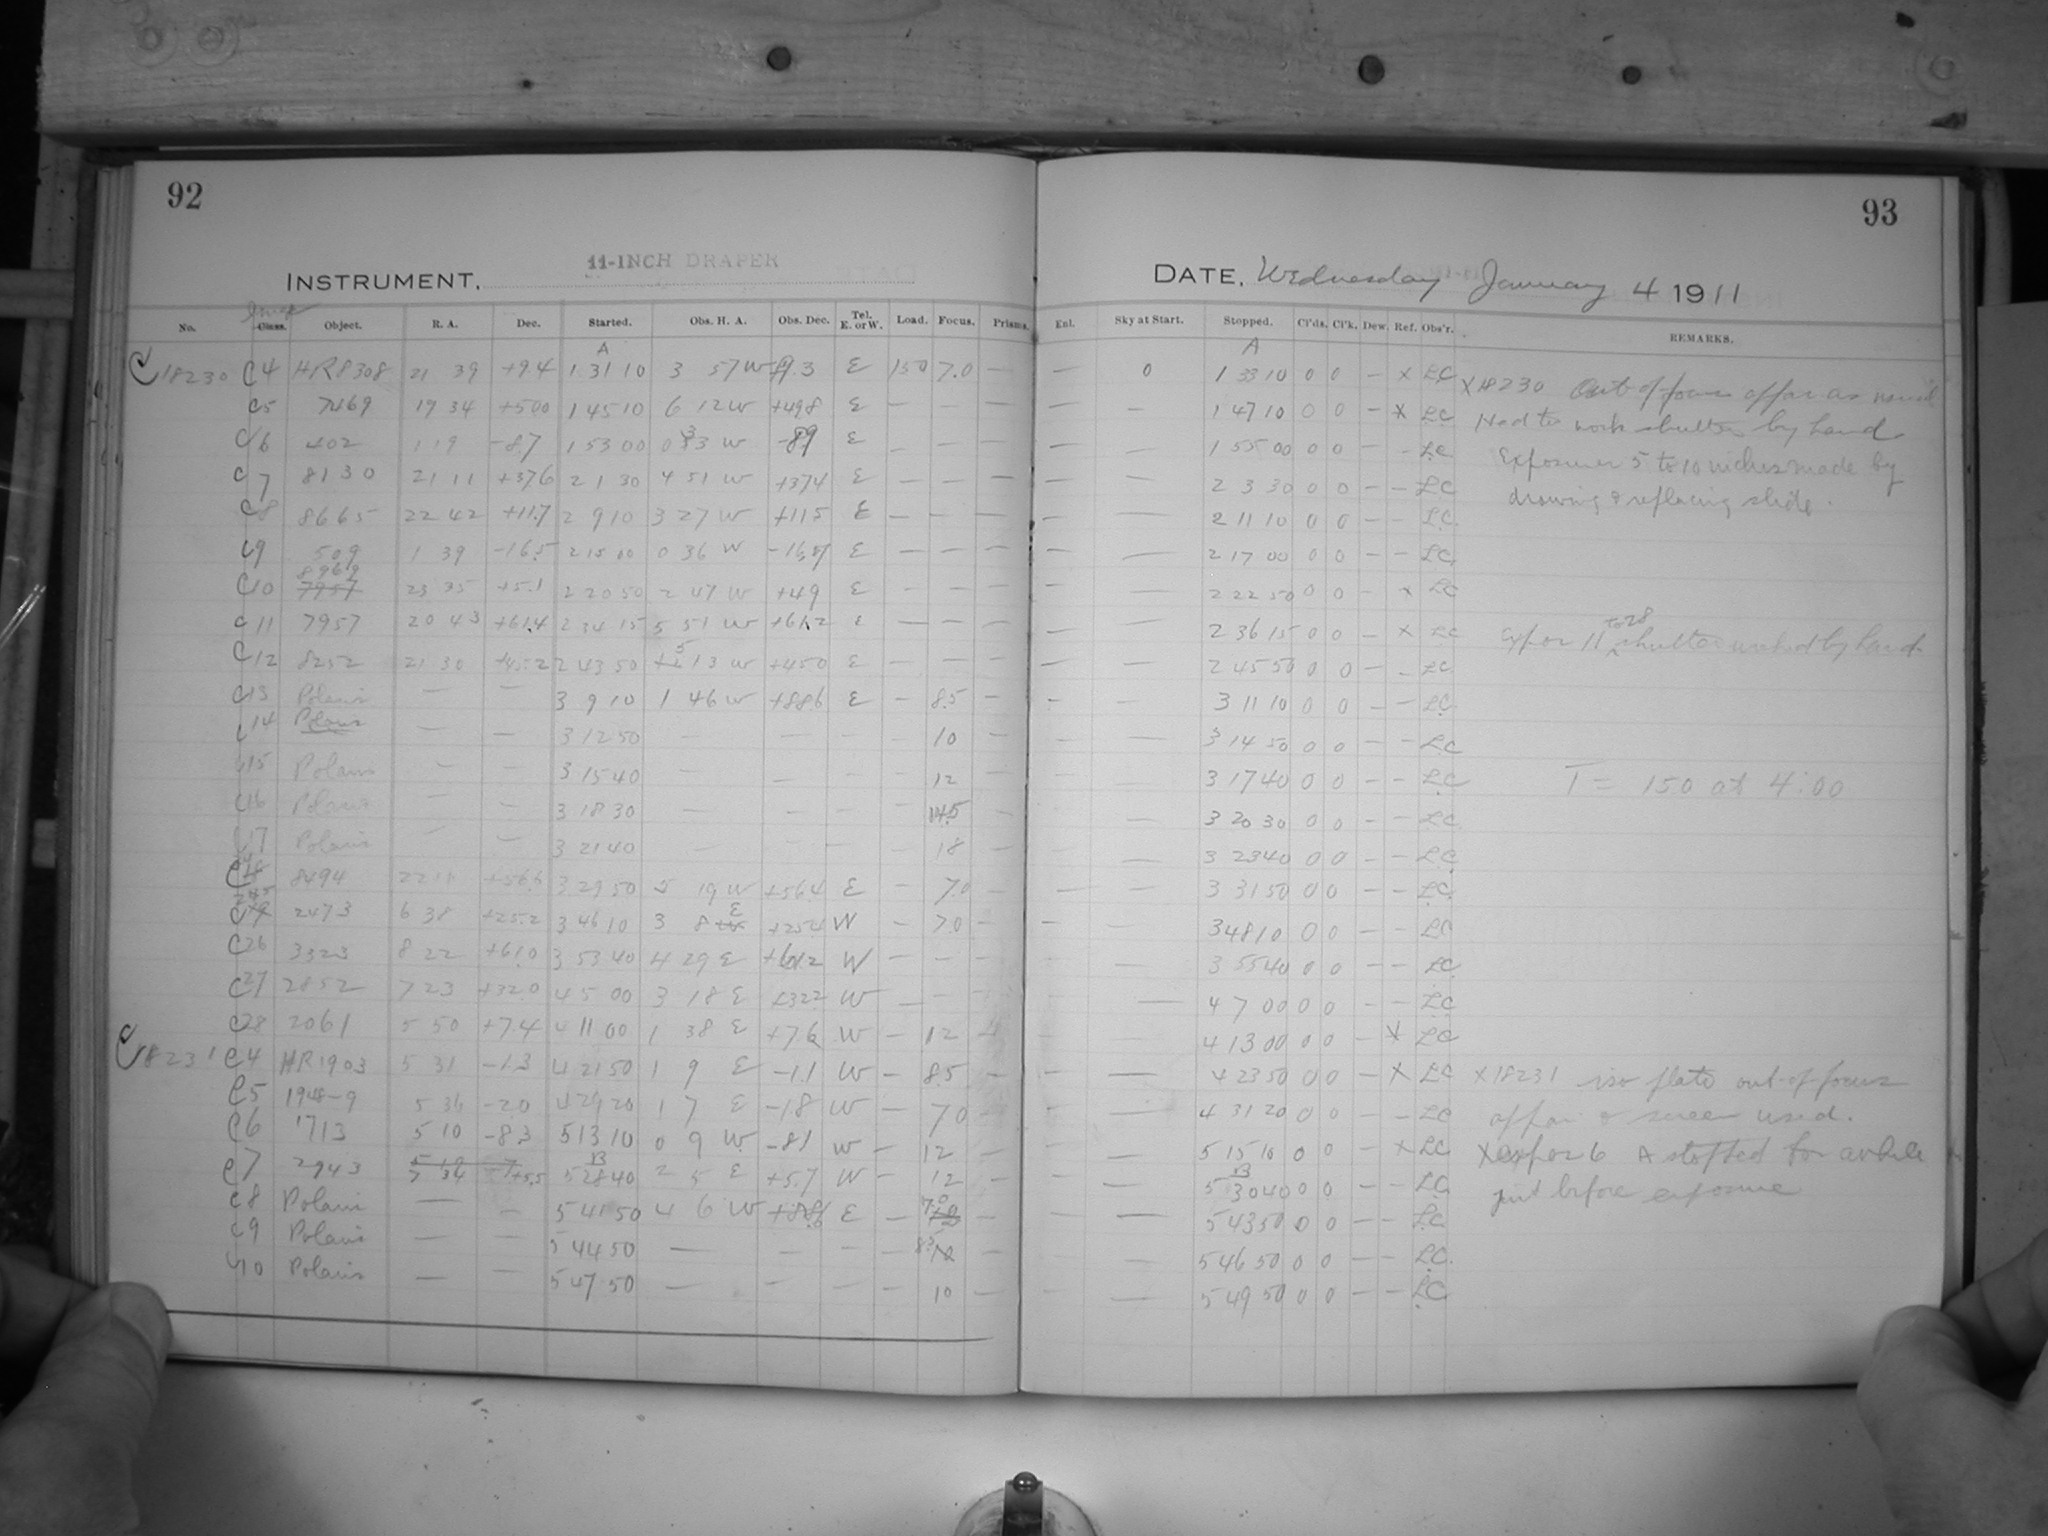 92
93
11-INCH DRAPER
INSTRUMENT.
DATE. Wednesday January 4 1911
Image
No. Class. Object. R. A. Dec. Started. Obs. H. A. Obs. Dec. Tel. E. or W. Load. Focus. Prisms. Enl. Sky at Start. Stopped. Cl'ds. Cl'k. Dew. Ref. Obs'r. REMARKS.
A A
C 18230 C4 HR8308 21 39 +9.4 1 31 10 3 57 W +9.3 E 150 7.0 — — 0 1 33 10 0 0 — x LC X 18230 Out of focus
C5 7469 19 34 +50.0 1 45 10 6 12 W +49.8 E — — — — — 1 47 10 0 0 — X LC Had to work shutter by hand
C6 402 1 19 -8.7 1 53 00 W E — — — — — 1 55 00 0 0 — - LC Exposures 5 to 10 made by
C7 8130 21 11 +37.6 2 1 30 4 51 W +37.4 E — — — — — 2 3 30 0 0 — - LC drawing & replacing slide.
C8 8665 22 42 +11.7 2 9 10 3 27 W +11.5 E — — — — — 2 11 10 0 0 — — LC
C9 509 1 39 -16.5 2 15 00 0 36 W E — — — — — 2 17 00 0 0 — — LC
8969
C10 7957 23 35 +5.1 2 20 50 2 47 W +4.9 E — — — — 2 22 50 0 0 — x LC
C11 7957 20 43 +61.4 2 34 15 5 51 W +61.2 E — — — — — 2 36 15 0 0 — x LC Expos 11 to 28 shutter worked by hand
C12 8252 21 30 +45.2 2 43 50 5 13 W +45.0 E — — — — — 2 45 50 0 0 — - LC
C13 Polaris — — 3 9 10 1 46 W +88.6 E — 8.5 — — — 3 11 10 0 0 — — LC
C14 Polaris — — 3 12 50 — — — — 10 — — — 3 14 50 0 0 — — LC
C15 Polaris — — 3 15 40 — — — — 12 — — — 3 17 40 0 0 — — LC T = 150 at 4:00
C16 Polaris — — 3 18 30 — — — — 14.5 — — 3 20 30 0 0 — — LC
C17 Polaris — — 3 21 40 — — — — 18 — — 3 23 40 0 0 — — LC
8494 22 11 +56.6 3 29 50 5 19 W +56.4 E — 7.0 — — — 3 31 50 0 0 — — LC
2473 6 38 +25.2 3 46 10 3 8 E +25.4 W — 7.0 — — — 3 48 10 0 0 — — LC
C26 3323 8 22 +61.0 3 53 40 4 29 E +61.2 W — — — — — 3 55 40 0 0 — — LC
C27 2852 7 23 +32.0 4 5 00 3 18 E +32.2 W — — — — — 4 7 00 0 0 — — LC
C28 2061 5 50 +7.4 4 11 00 1 38 E +7.6 W — 12 — — 4 13 00 0 0 — X LC
C 18231 C4 HR1903 5 31 -1.3 4 21 50 1 9 E -1.1 W — 8.5 — — — 4 23 50 0 0 — X LC X 18231 iso plate out-of-focus
C5 1948-9 5 36 -2.0 4 29 20 1 7 E -1.8 W — 7.0 — — — 4 31 20 0 0 — — LC & screen used.
C6 1713 5 10 -8.3 5 13 10 0 9 W -8.1 W — 12 — — — 5 15 10 0 0 — X LC X expos 6 A stopped for awhile
B B
C7 2943 7 34 +5.5 5 28 40 2 5 E +5.7 W — 12 — — — 5 30 40 0 0 — — LC just before exposure
C8 Polaris — — 5 41 50 4 6 W +88.6 E — 7.0 — — — 5 43 50 0 0 — — LC
C9 Polaris — — 5 44 50 — — — — 8.5 — — — 5 46 50 0 0 — — LC
C10 Polaris — — 5 47 50 — — — — 10 — — — 5 49 50 0 0 — — LC